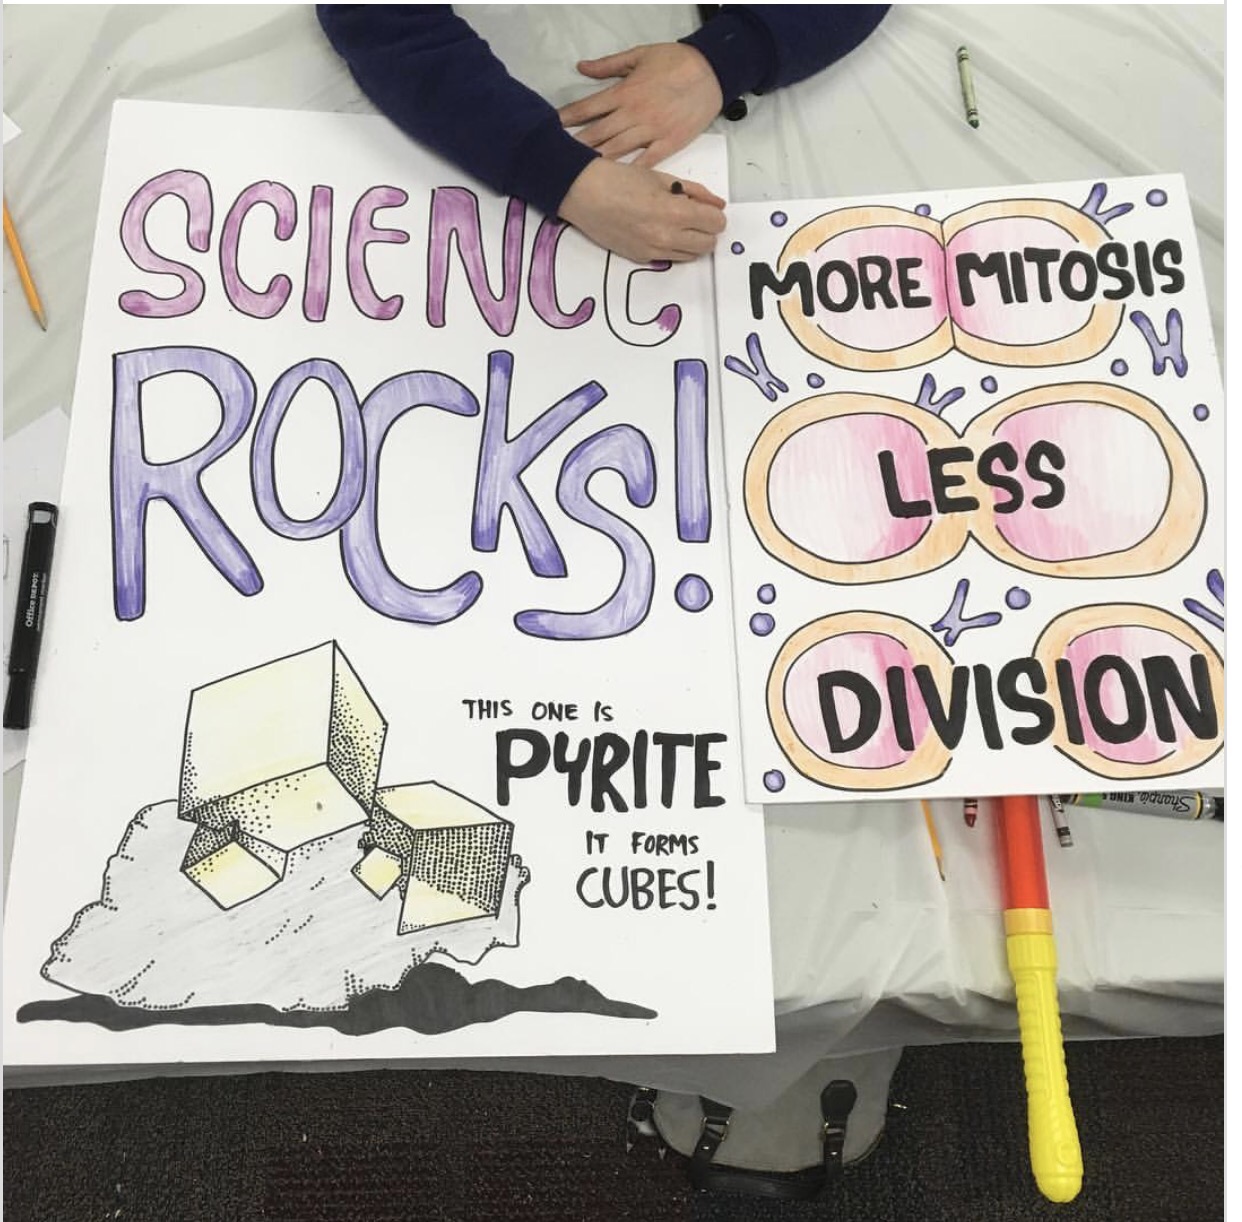 SCIENCE
ROCKS!
THIS ONE IS
PYRITE
IT FORMS
CUBES!
MORE MITOSIS
LESS
DIVISION
Office DEPOT
Sharpie KING